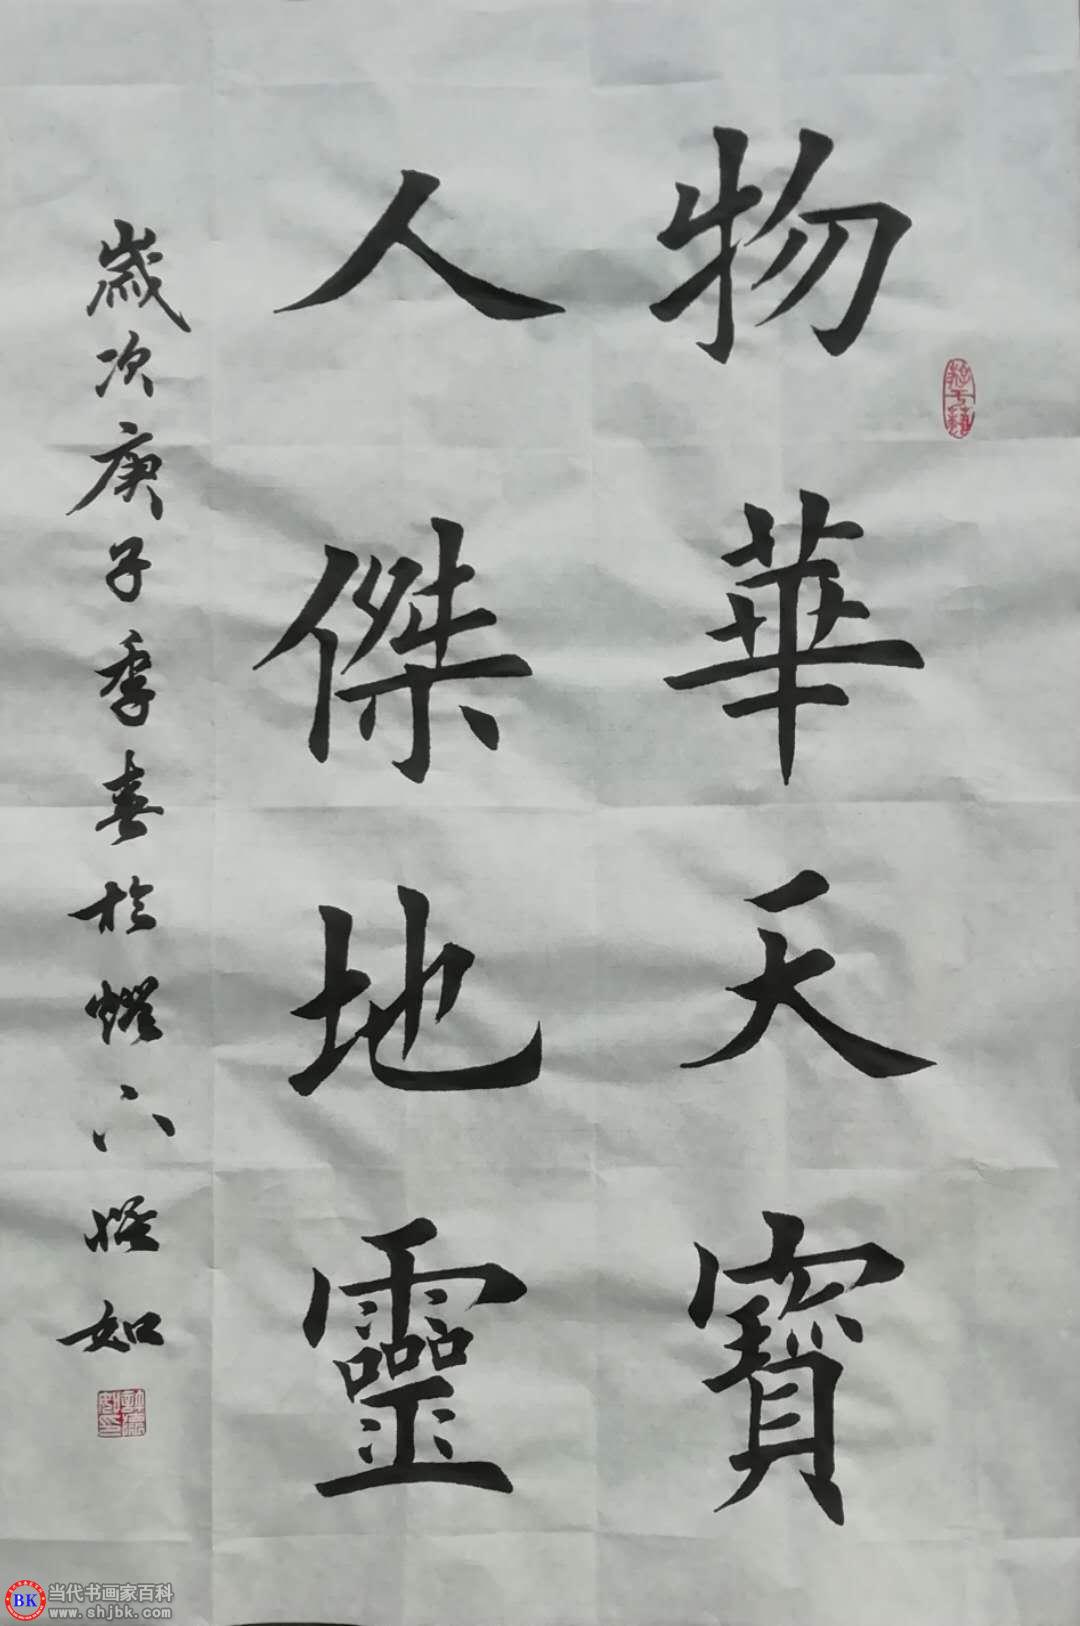 物華天寶
人傑地靈
歲次庚子季春於燈下
如
BK 当代书画家百科
www.shjbk.com